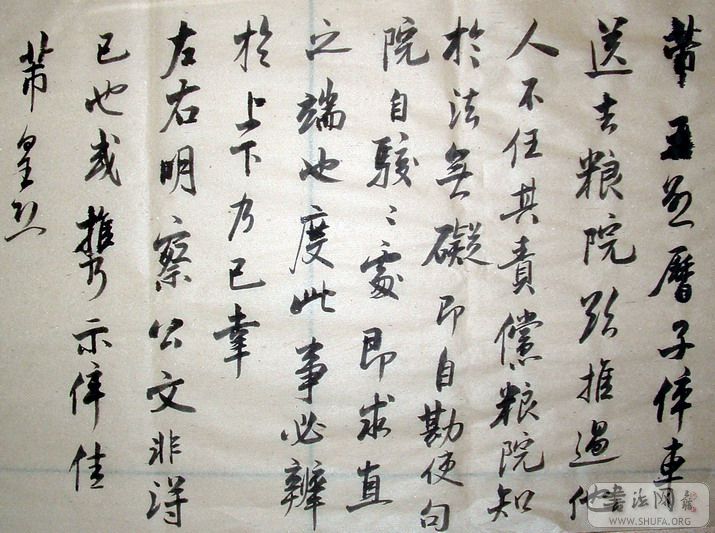 芾五曆子倅車
送去粮院欲推過他
人不任其責儻粮院知
於法無礙即自勘使句
院自駮〻處即求直
之端也度此事必辨
於上下乃已幸
左右明察公文非得
已也或攜示倅佳
芾皇恐
書法网
WWW.SHUFA.ORG